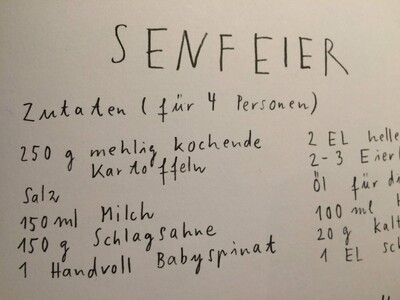 SENFEIER
Zutaten (für 4 Personen)
250 g mehlig kochende
Kartoffeln
Salz
150 ml Milch
150 g Schlagsahne
1 Handvoll Babyspinat
2 EL helle
2-3
Öl für
100 ml
20 g
1 EL